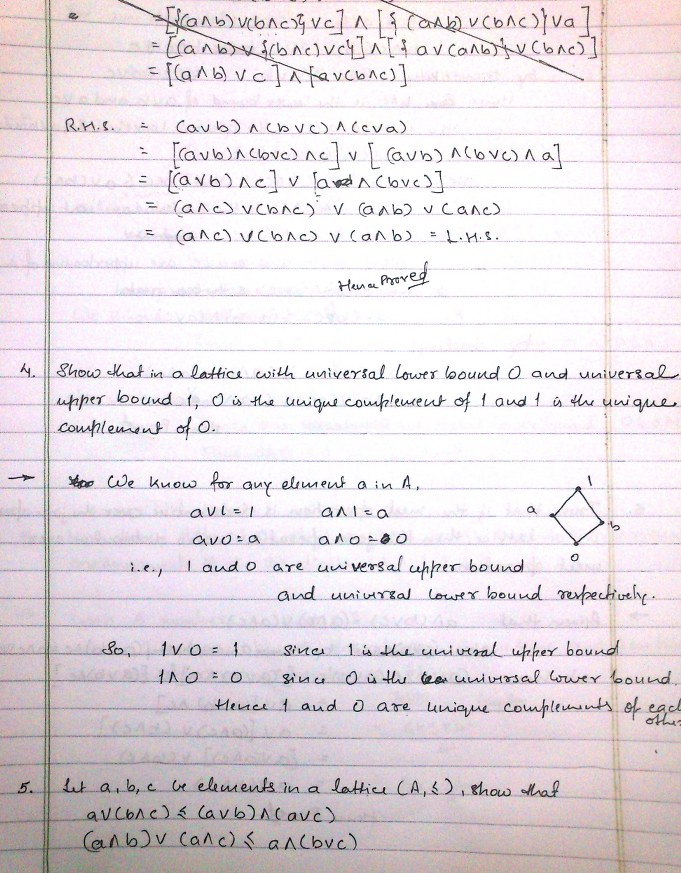 = [{(a∧b)∨(b∧c)}∨c] ∧ [{(a∧b)∨(b∧c)}∨a]
= [(a∧b)∨{(b∧c)∨c}]∧[{a∨(a∧b)}∨(b∧c)]
= [(a∧b)∨c]∧[a∨(b∧c)]
R.H.S. = (a∨b)∧(b∨c)∧(c∨a)
= [(a∨b)∧(b∨c)∧c]∨[(a∨b)∧(b∨c)∧a]
= [(a∨b)∧c]∨[a∧(b∨c)]
= (a∧c)∨(b∧c)∨(a∧b)∨(a∧c)
= (a∧c)∨(b∧c)∨(a∧b) = L.H.S.
Hence Proved
4. Show that in a lattice with universal lower bound 0 and universal
upper bound 1, 0 is the unique complement of 1 and 1 is the unique
complement of 0.
→ We know for any element a in A,
a∨1=1 a∧1=a
a∨0=a a∧0=0
1
a
b
0
i.e., 1 and 0 are universal upper bound
and universal lower bound respectively.
So, 1∨0=1 since 1 is the univeral upper bound
1∧0=0 since 0 is the universal lower bound.
Hence 1 and 0 are unique complements of each
other
5. Let a, b, c be elements in a lattice (A,≤), show that
a∨(b∧c)≤(a∨b)∧(a∨c)
(a∧b)∨(a∧c)≤a∧(b∨c)